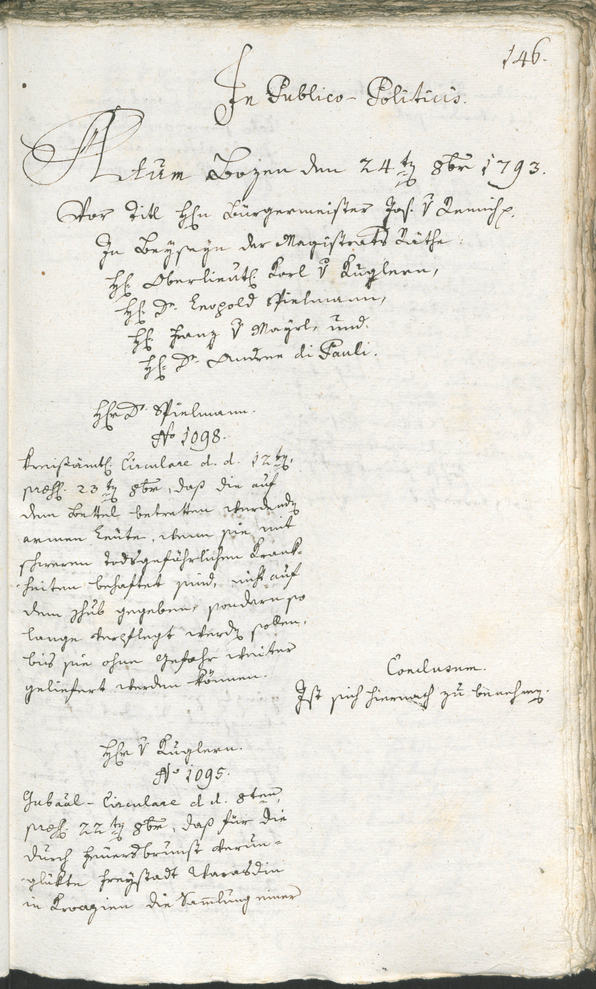 146.
In Publico-Politicis.
Actum Bozen den 24.ten 8br 1793.
Vor Titl Hrn Bürgermeister Jos. v
In Beyseyn der Magistrats Räthe:
H. Oberlieut. Karl v Kuglern,
H. Dr. Leopold Spielmann,
H. Franz v Mayrl, und
H. Dr. Andree di Pauli.
Hr Dr. Spielmann.
No 1098.
Kreisämtl. Circulare d. d. 12ten,
præs. 23ten 8br, daß die auf
dem Bettel betretten werdenden
armen Leute, wenn sie mit
schweren todsgefährlichen Krank-
heiten behaftet sind, nicht auf
dem Schub gegeben, sondern so
lange verpflegt werden sollen,
bis sie ohne Gefahr weiter
geliefert werden können.
Conclusum.
Ist sich hiernach zu benehmen.
Hr v Kuglern.
No 1095.
Gubäal-Circulare d. d. 8ten,
præs. 22ten 8br, daß für die
durch Feuersbrunst verun-
glükte Freystadt Warasdin
in Kroazien die Sammlung einer